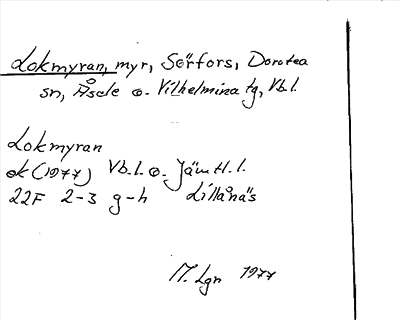 Lokmyran, myr, Sörfors, Dorotea
sn, Åsele o. Vilhelmina tg, Vb.l.
Lokmyran
ek (1977) Vb.l. o. Jämtl. l.
22F 2-3 g-h Lillånäs
M. Lgn 1977